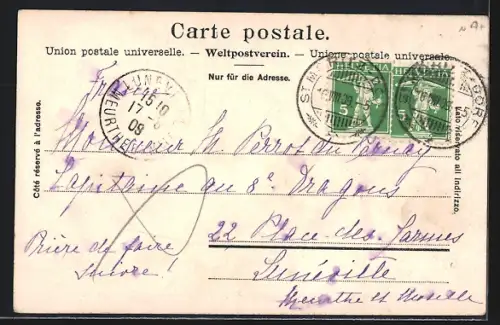 Carte postale.
Union postale universelle. – Weltpostverein. – Unione postale universale.
Nur für die Adresse.
Côté réservé à l'adresse.
Lato riservato all' indirizzo.
HELVETIA HELVETIA
5 5
ST. M
DORF
LUNEV
15 10
17 - 8
09
MEURTHE
France
Monsieur Th Perrot du
Capitaine au 8e Dragons
22 Place des Carmes
Prière de faire
suivre!
Lunéville
Meurthe et Moselle